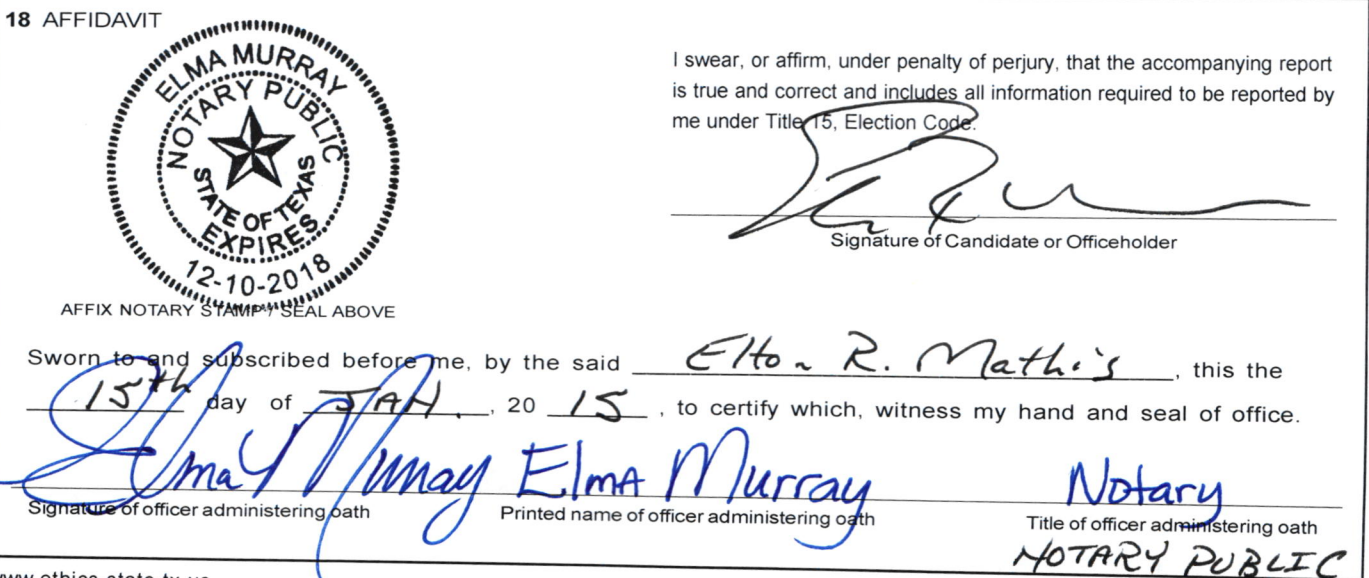 18 AFFIDAVIT
ELMA MURRAY
NOTARY PUBLIC
STATE OF TEXAS
EXPIRES
12-10-2018
AFFIX NOTARY STAMP / SEAL ABOVE
I swear, or affirm, under penalty of perjury, that the accompanying report
is true and correct and includes all information required to be reported by
me under Title 15, Election Code.
Signature of Candidate or Officeholder
Sworn to and subscribed before me, by the said Elton R. Mathis, this the
15th day of JAN., 20 15, to certify which, witness my hand and seal of office.
Elma Murray Elma Murray Notary
Signature of officer administering oath Printed name of officer administering oath Title of officer administering oath
NOTARY PUBLIC